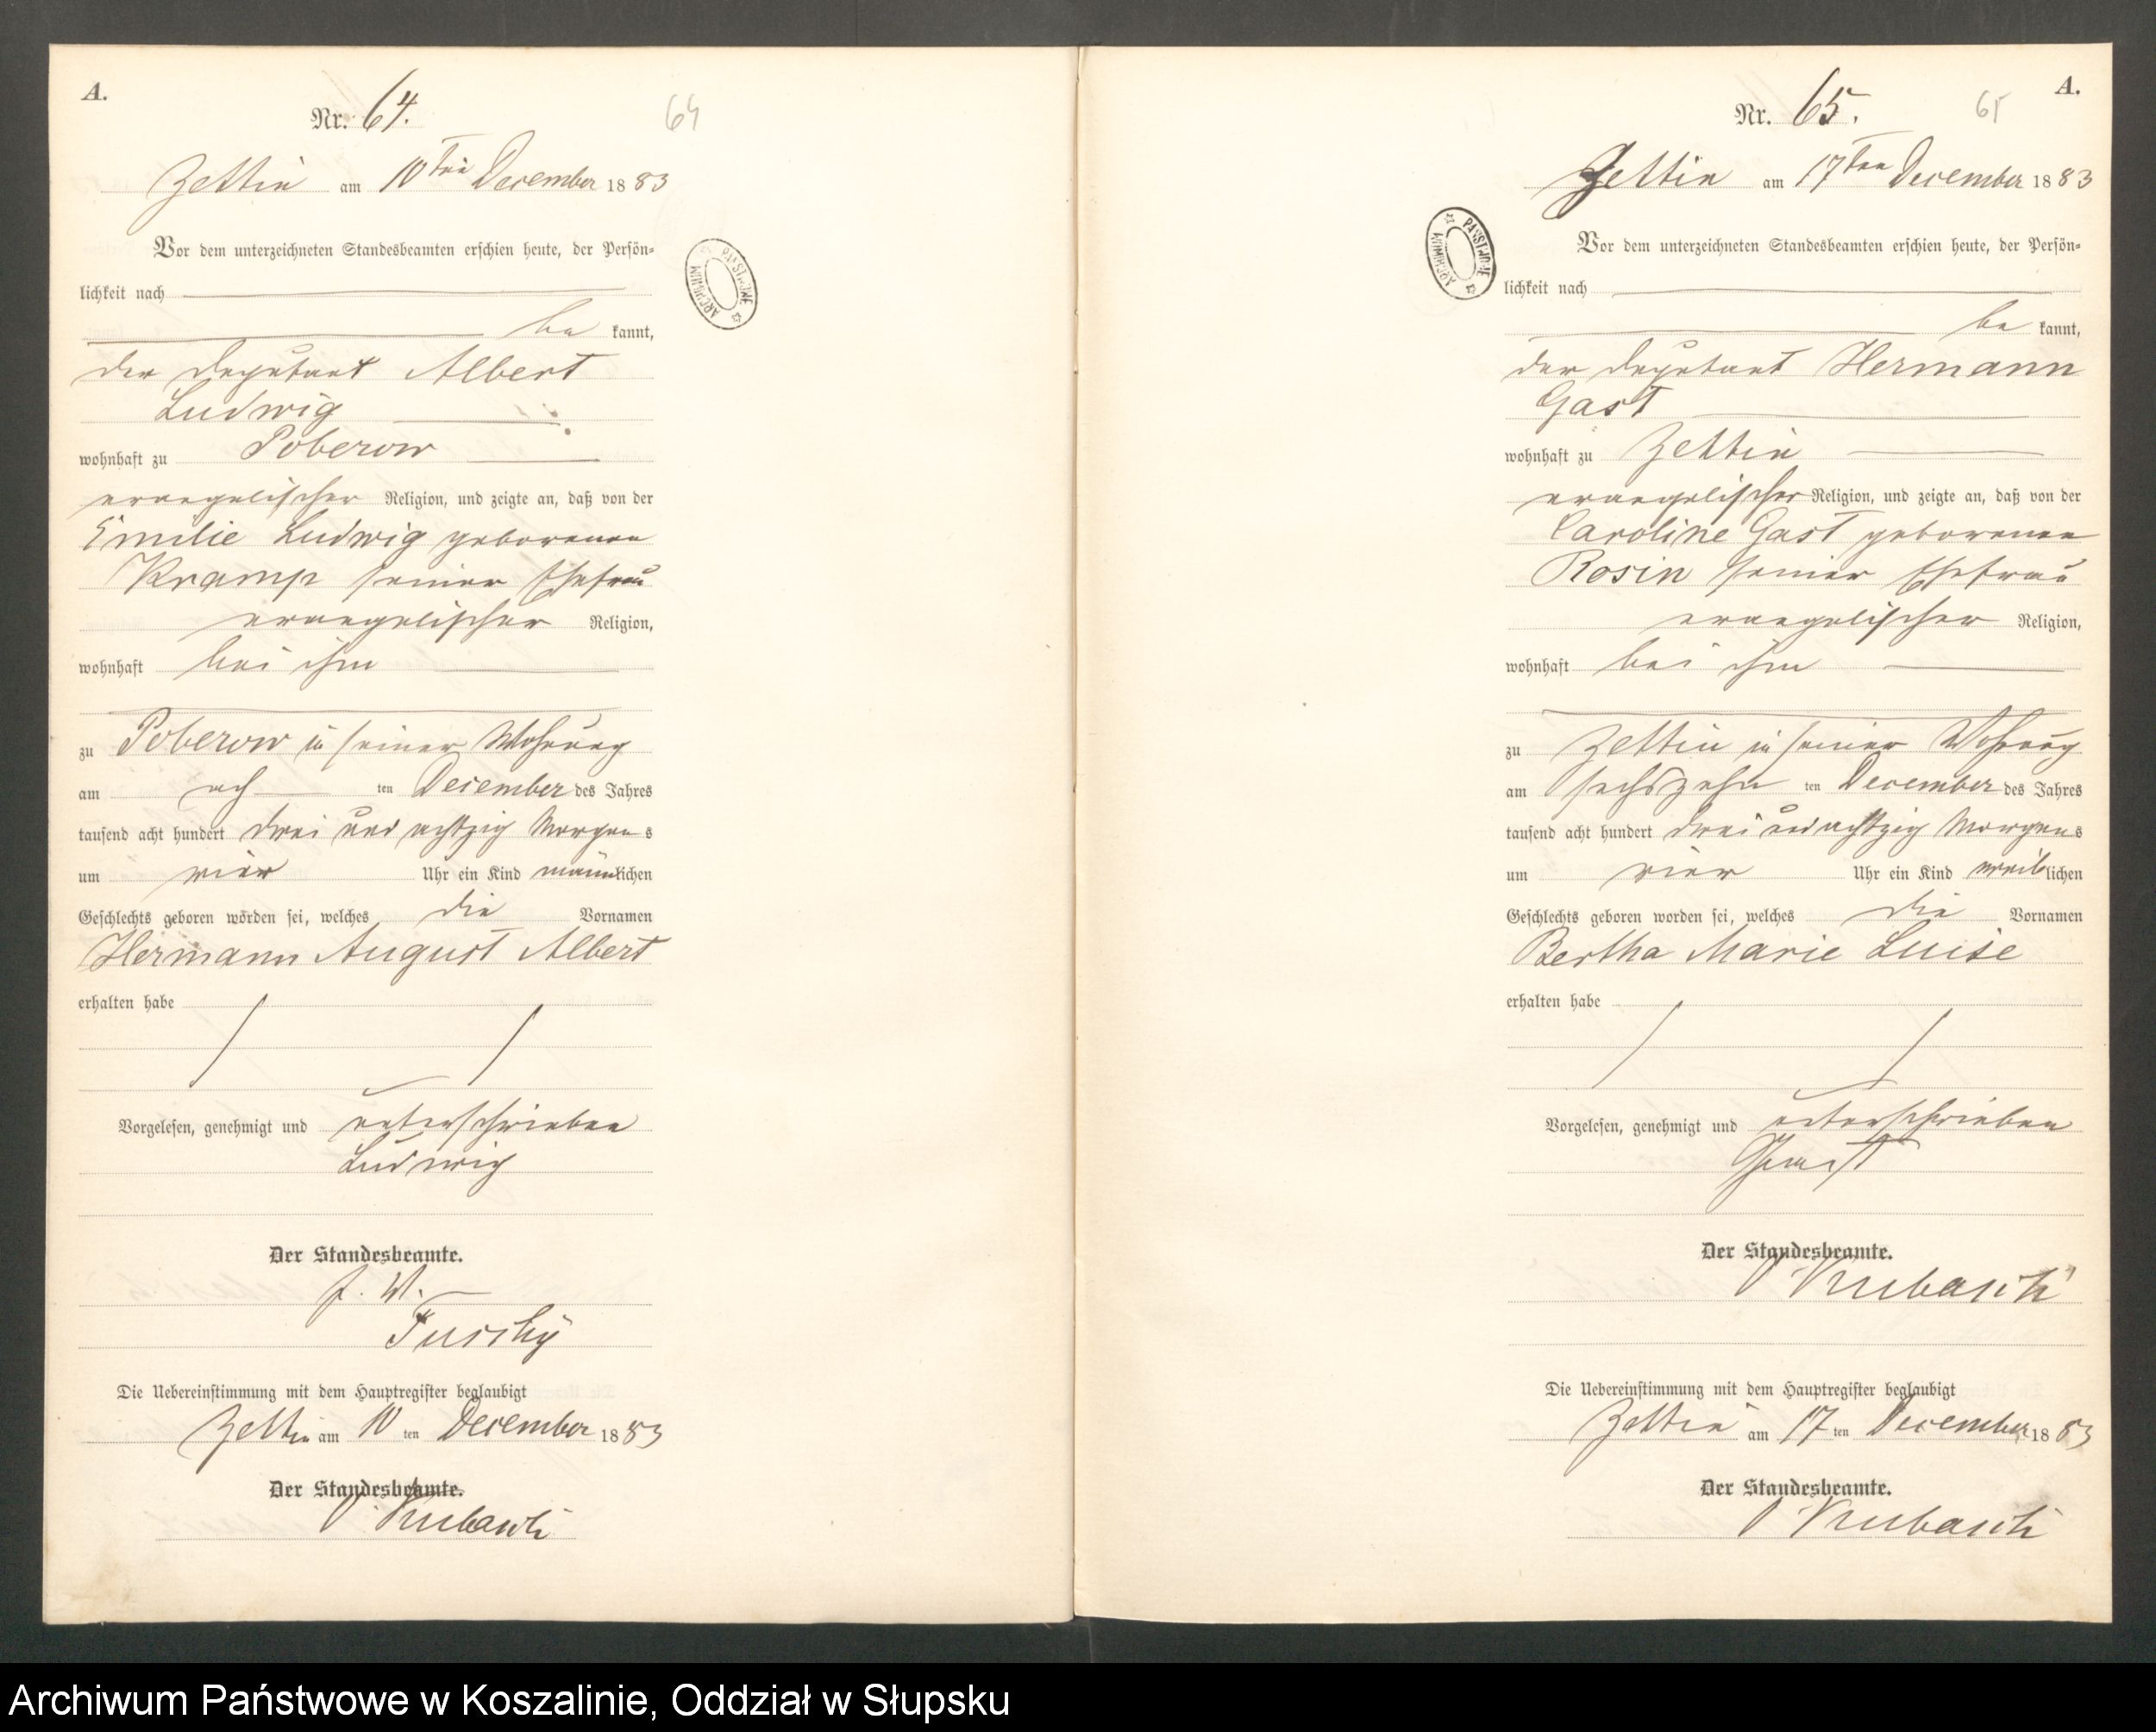 A.
Nr. 64.
64
Zettin am 10ten December 1883
Vor dem unterzeichneten Standesbeamten erschien heute, der Persön-
lichkeit nach
be kannt,
der Deputant Albert
Ludwig
wohnhaft zu Poberow
evangelischer Religion, und zeigte an, daß von der
Emilie Ludwig geborenen
Kramp seiner Ehefrau
evangelischer Religion,
wohnhaft bei ihm
zu Poberow in seiner Wohnung
am ach ten December des Jahres
tausend acht hundert drei und achtzig Morgens
um vier Uhr ein Kind männlichen
Geschlechts geboren worden sei, welches die Vornamen
Hermann August Albert
erhalten habe
Vorgelesen, genehmigt und unterschrieben
Ludwig
Der Standesbeamte.
Die Uebereinstimmung mit dem Hauptregister beglaubigt
Zettin am 10 ten December 1883
Der Standesbeamte.
ARCHIWUM PAŃSTWOWE
A.
Nr. 65.
65
Zettin am 17ten December 1883
Vor dem unterzeichneten Standesbeamten erschien heute, der Persön-
lichkeit nach
be kannt,
der Deputant Hermann
Gast
wohnhaft zu Zettin
evangelischer Religion, und zeigte an, daß von der
Caroline Gast geborenen
Rosin seiner Ehefrau
evangelischer Religion,
wohnhaft bei ihm
zu Zettin in seiner Wohnung
am sechszehn ten December des Jahres
tausend acht hundert drei und achtzig Morgens
um vier Uhr ein Kind weiblichen
Geschlechts geboren worden sei, welches die Vornamen
Bertha Marie Luise
erhalten habe
Vorgelesen, genehmigt und unterschrieben
Gast
Der Standesbeamte.
Die Uebereinstimmung mit dem Hauptregister beglaubigt
Zettin am 17 ten December 1883
Der Standesbeamte.
ARCHIWUM PAŃSTWOWE
Archiwum Państwowe w Koszalinie, Oddział w Słupsku